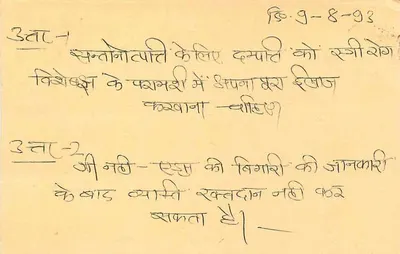 दि. 9-8-93
उत्तर-1
सन्तानोत्पति के लिए दम्पति को स्त्री रोग
विशेषज्ञ के परामर्श में अपना पूरा ईलाज
करवाना चाहिए।
उत्तर-2
जी नही - एड्स की बिमारी की जानकारी
के बाद व्यक्ति रक्तदान नही कर
सकता है। -